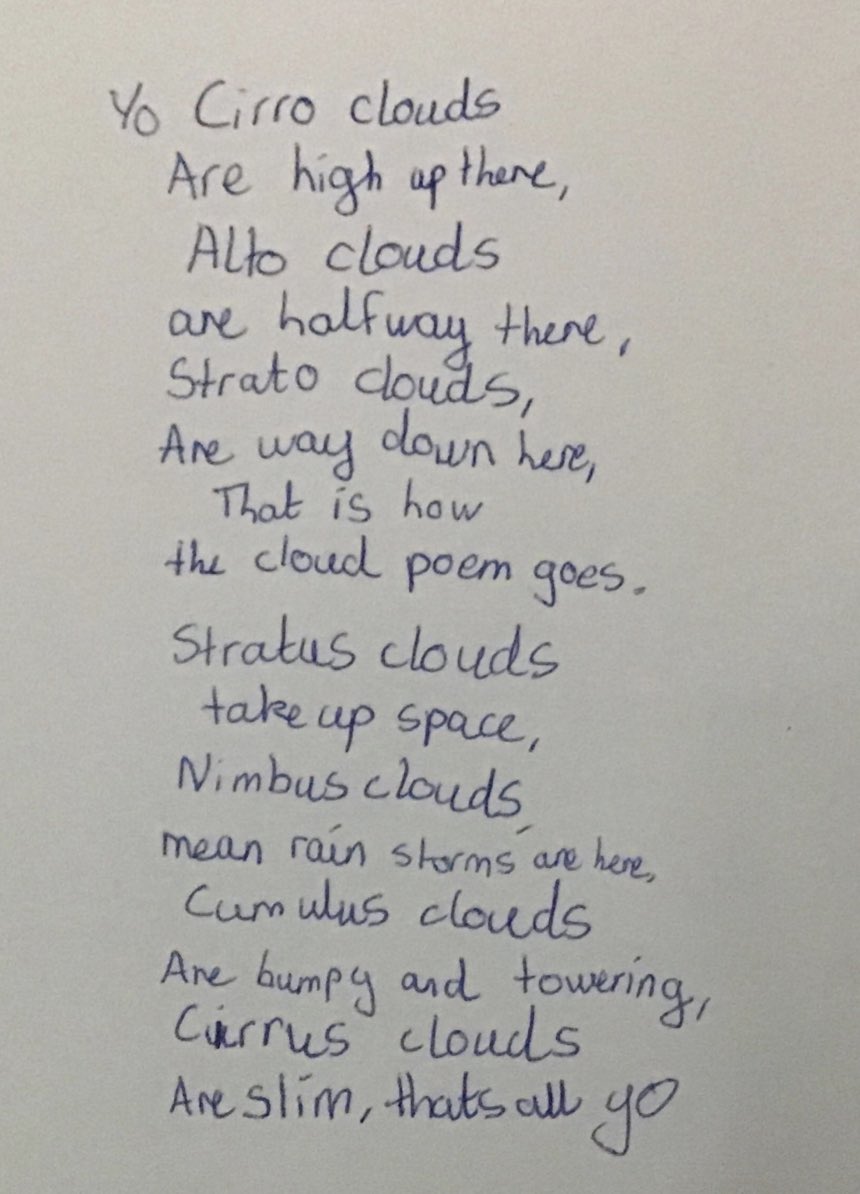 Yo Cirro clouds
Are high up there,
Alto clouds
are halfway there,
Strato clouds,
Are way down here,
That is how
the cloud poem goes.
Stratus clouds
take up space,
Nimbus clouds
mean rain storms are here,
Cumulus clouds
Are bumpy and towering,
Cirrus clouds
Are slim, thats all yo